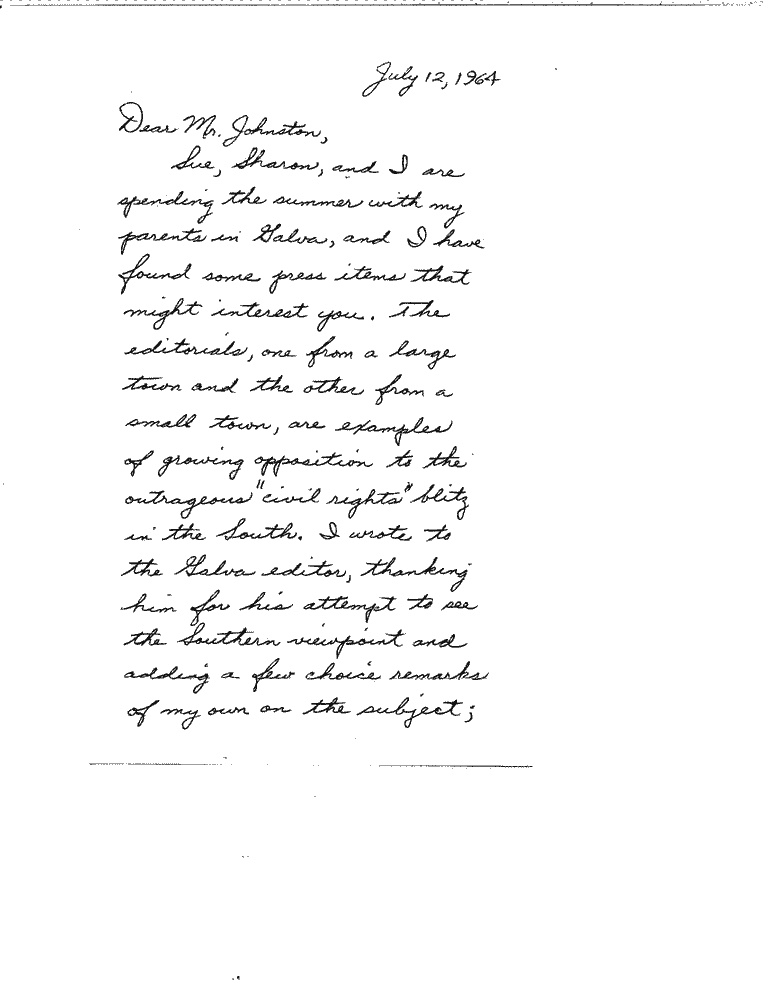 July 12, 1964
Dear Mr. Johnston,
Sue, Sharon, and I are
spending the summer with my
parents in Galva, and I have
found some press items that
might interest you. The
editorials, one from a large
town and the other from a
small town, are examples
of growing opposition to the
outrageous "civil rights" blitz
in the South. I wrote to
the Galva editor, thanking
him for his attempt to see
the Southern viewpoint and
adding a few choice remarks
of my own on the subject;